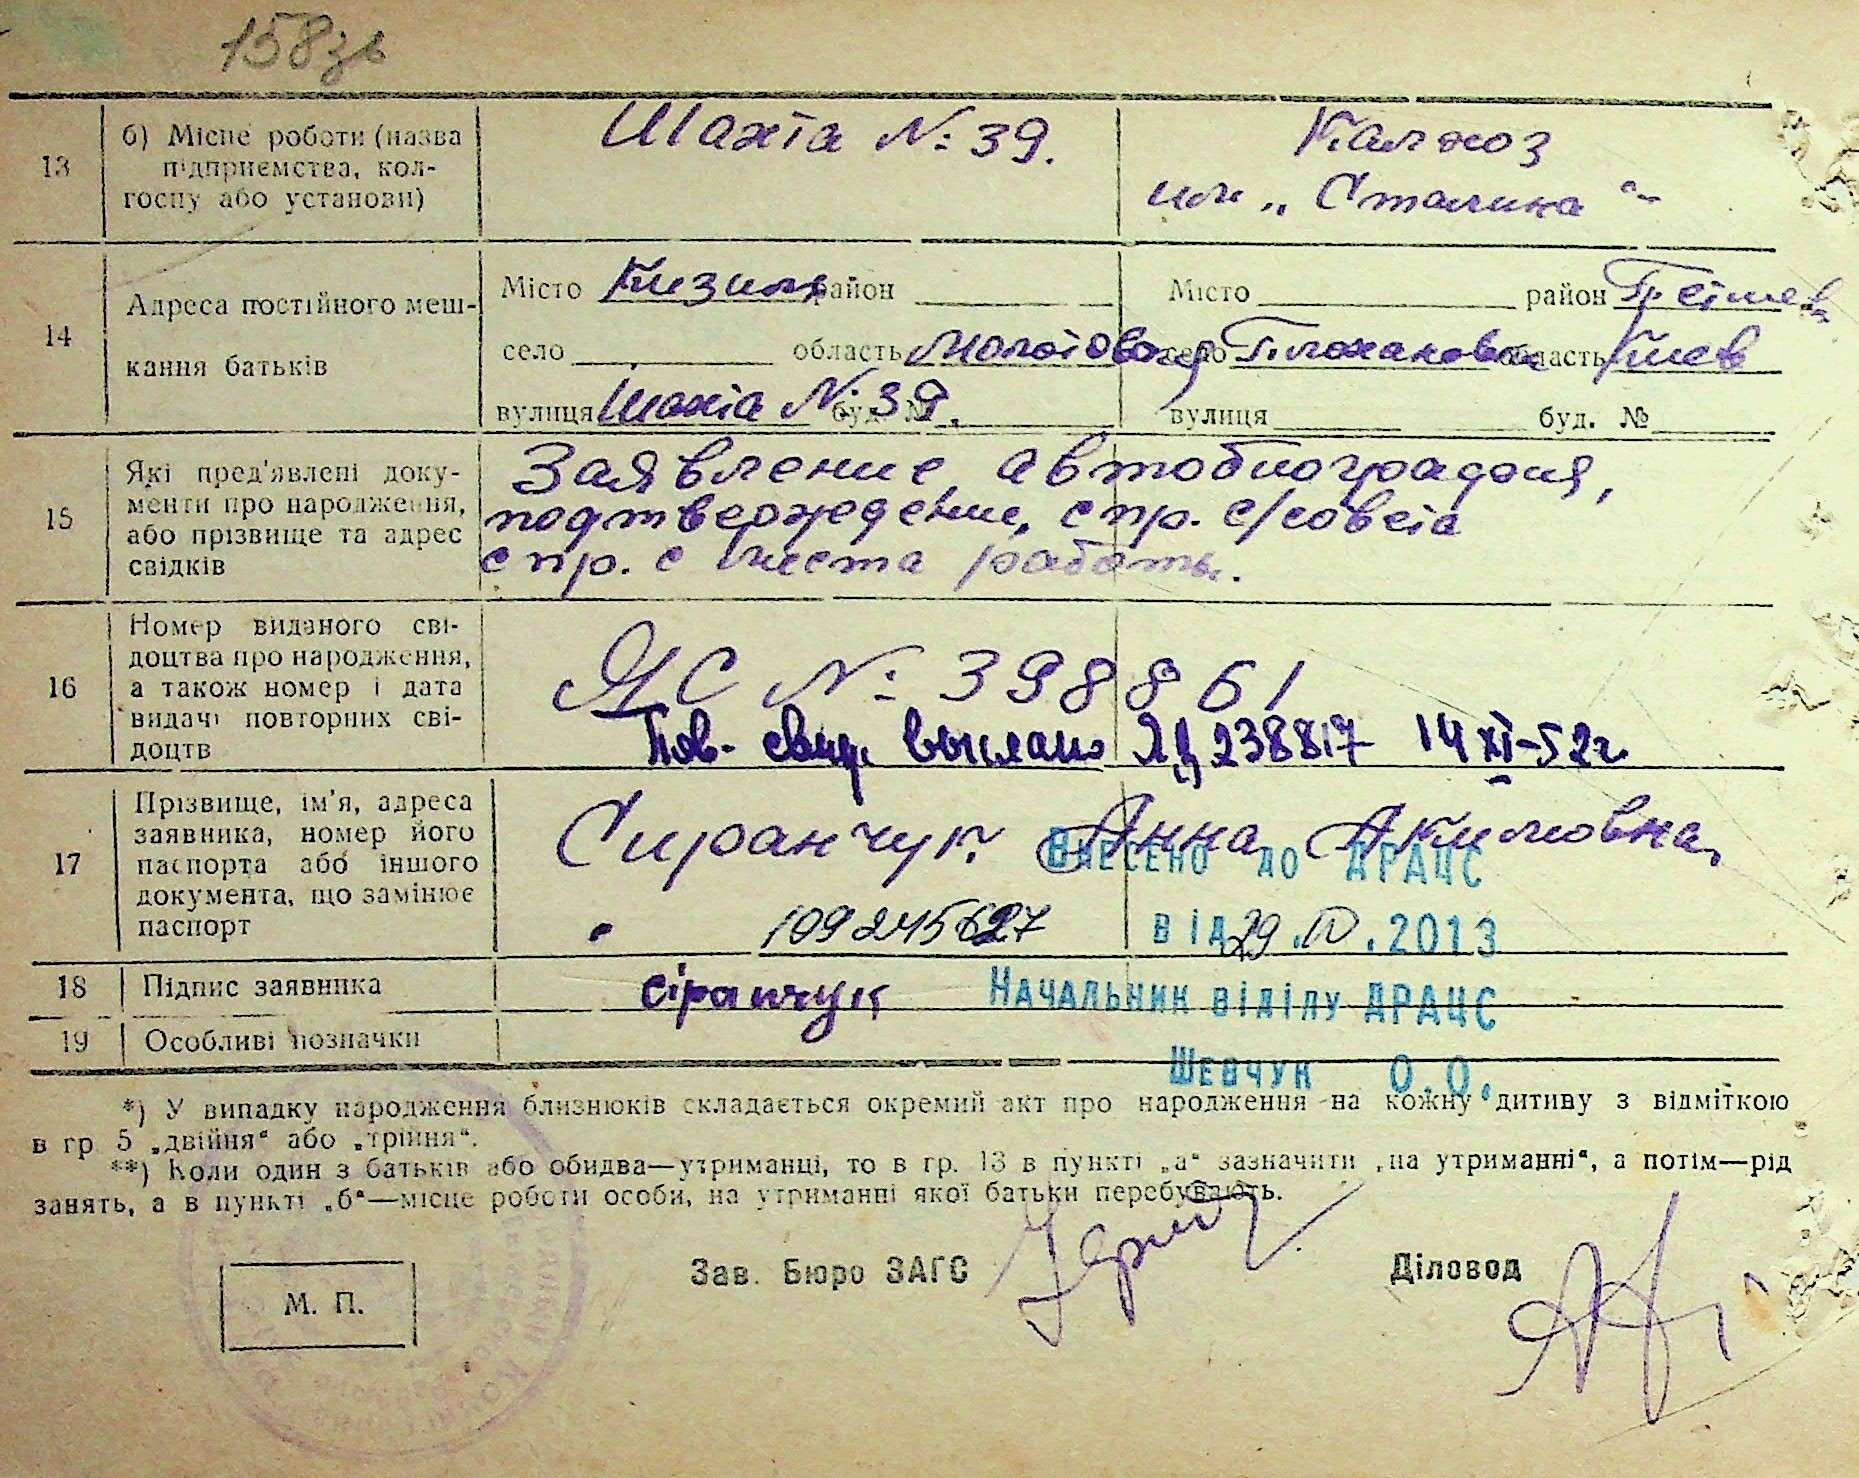 158зв
13 б) Місце роботи (назва підприємства, колгоспу або установи)
Шахта №: 39.
Калхоз
им. „ Сталина “
14 Адреса постійного мешкання батьків
Місто Кизил район
село область Молотовская
вулиця Шахта №: 39. буд. №
Місто район Тетиев
село область Киев
вулиця буд. №
15 Які пред'явлені документи про народження, або прізвище та адрес свідків
Заявление, автобиография,
подтверждение, спр. с/совета
спр. с места работы.
16 Номер виданого свідоцтва про народження, а також номер і дата видачі повторних свідоцтв
ЯС №: 398861
Пов. свид. выслано ЯЦ 238817 14 XI-52г
17 Прізвище, ім'я, адреса заявника, номер його паспорта або іншого документа, що замінює паспорт
Сиранчук Анна Акимовна,
Внесено до ДРАЦС
109245627
від 29.IV.2013
18 Підпис заявника
сіранчук
Начальник віділу ДРАЦС
19 Особливі позначки
Шевчук О.О.
*) У випадку народження близнюків складається окремий акт про народження на кожну дитину з відміткою
в гр 5 „двійня“ або „трійня“.
**) Коли один з батьків або обидва—утриманці, то в гр. 13 в пункті „а“ зазначити „на утриманні“, а потім—рід
занять, а в пункті „б“—місце роботи особи, на утриманні якої батьки перебувають.
Зав. Бюро ЗАГС
Діловод
М. П.